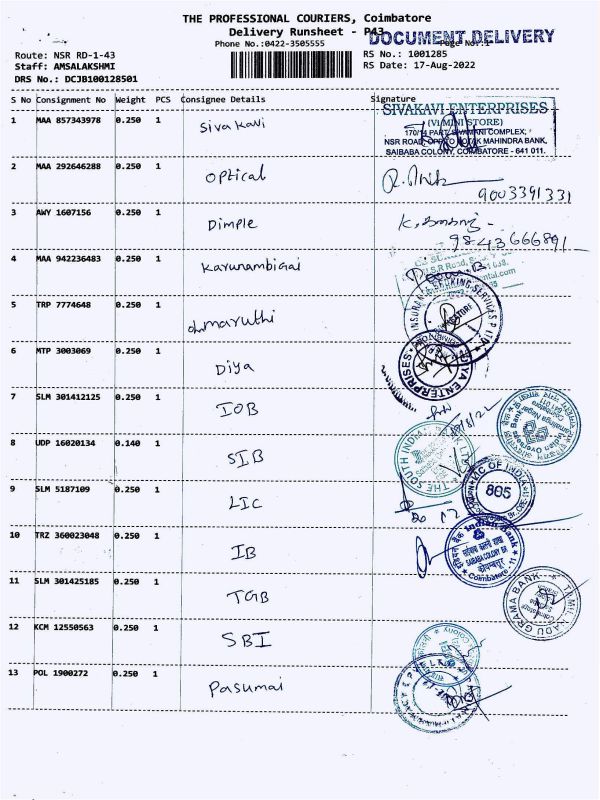 THE PROFESSIONAL COURIERS, Coimbatore
Delivery Runsheet - P43
DOCUMENT DELIVERY
Phone No.:0422-3505555
Page No.:1
Route: NSR RD-1-43
RS No.: 1001285
Staff: AMSALAKSHMI
RS Date: 17-Aug-2022
DRS No.: DCJB100128501
S No Consignment No Weight PCS Consignee Details Signature
1 MAA 857343978 0.250 1 Sivakavi
SIVAKAVI ENTERPRISES
(VI MINI STORE)
170/14 PART, SIVAMANI COMPLEX,
NSR ROAD, OPP TO KOTAK MAHINDRA BANK,
SAIBABA COLONY, COIMBATORE - 641 011.
2 MAA 292646288 0.250 1 optical
9003391331
3 AWY 1607156 0.250 1 Dimple
9843666891
4 MAA 942236483 0.250 1 Karunambigai
5 TRP 7774648 0.250 1 maruthi
6 MTP 3003069 0.250 1 Diya
DIYA ENTERPRISES
7 SLM 301412125 0.250 1 IOB
8 UDP 16020134 0.140 1 SIB
THE SOUTH INDIAN BANK LTD
9 SLM 5187109 0.250 1 LIC
LIC OF INDIA
805
10 TRZ 360023048 0.250 1 IB
Indian Bank
SAIBABA COLONY BR
Coimbatore - 11
11 SLM 301425185 0.250 1 TGB
TAMIL NADU GRAMA BANK
12 KCM 12550563 0.250 1 SBI
13 POL 1900272 0.250 1 Pasumai